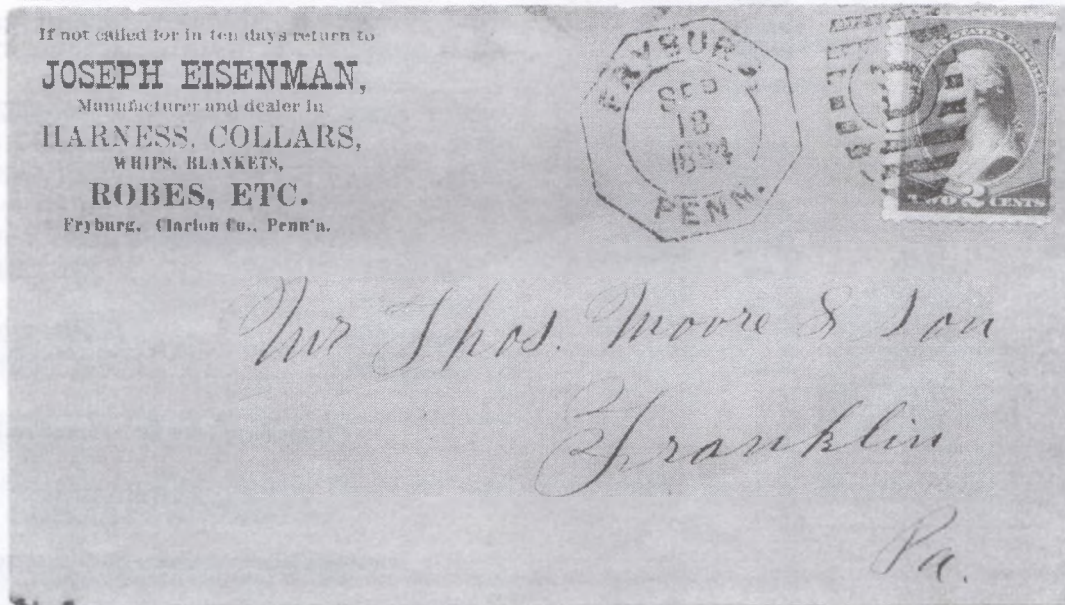 If not called for in ten days return to
JOSEPH EISENMAN,
Manufacturer and dealer in
HARNESS, COLLARS,
WHIPS, BLANKETS,
ROBES, ETC.
Fryburg, Clarion Co., Penn'a.
FRYBURG
SEP
18
1884
PENN.
TWO 2 CENTS
Mr Thos. Moore & Son
Franklin
Pa.